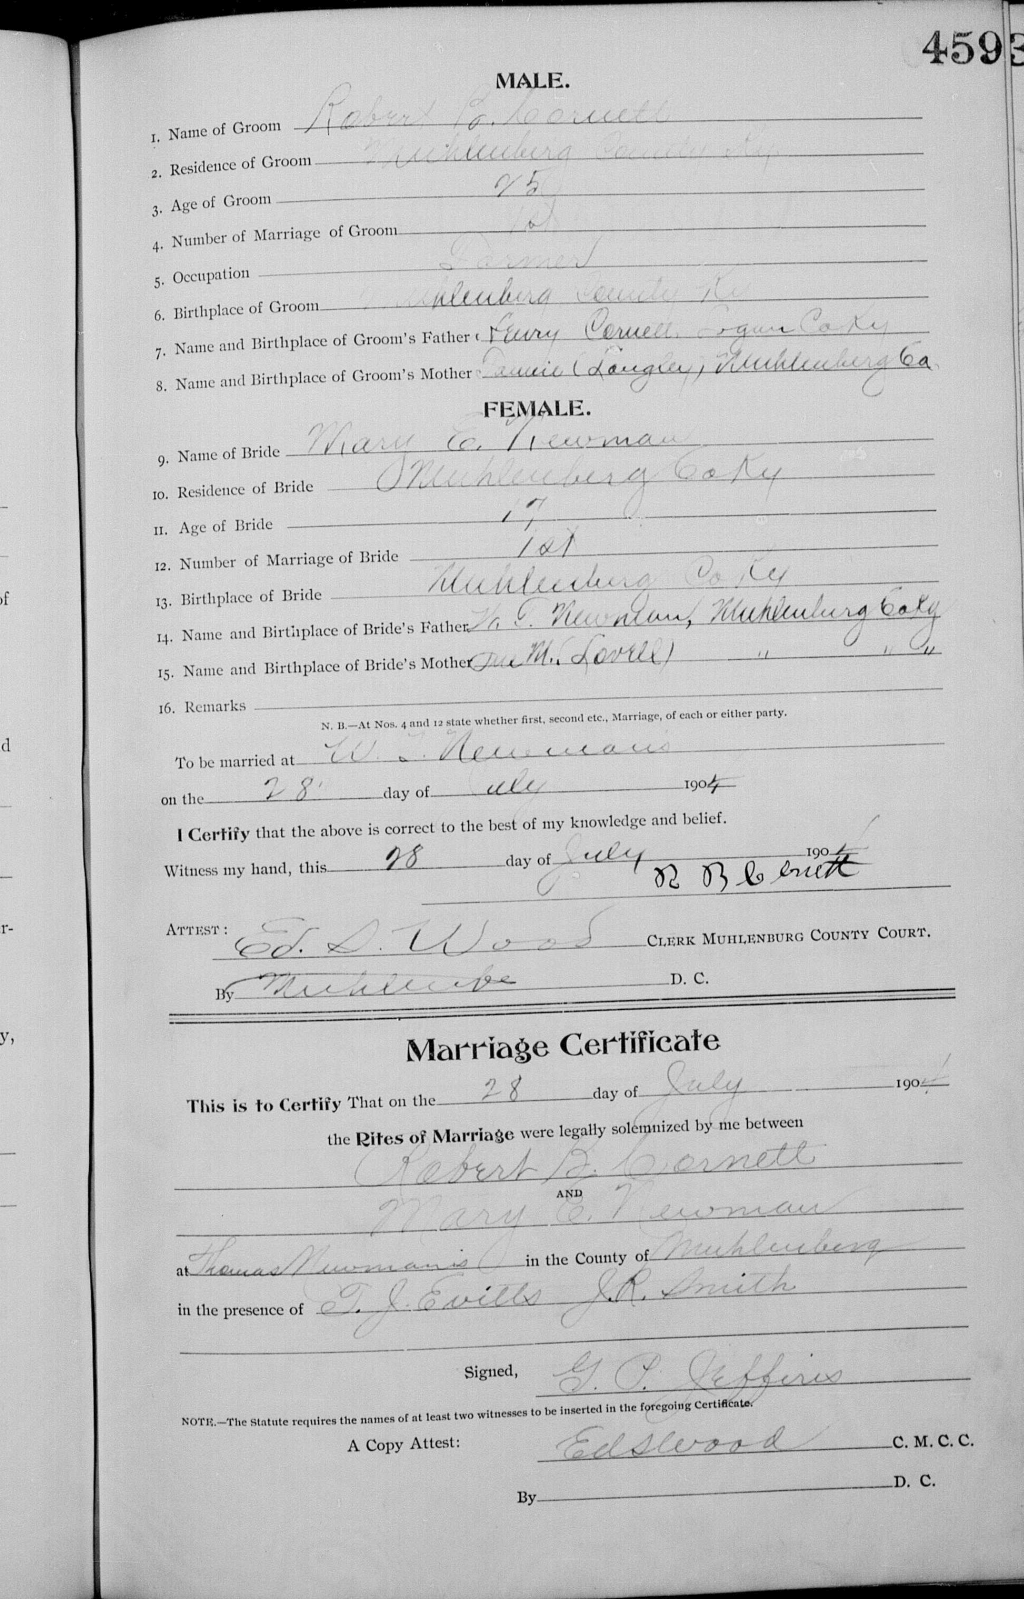 4593
MALE.
1. Name of Groom Robert B. Cornett
2. Residence of Groom Muhlenberg County Ky
3. Age of Groom 25
4. Number of Marriage of Groom 1st
5. Occupation Farmer
6. Birthplace of Groom Muhlenberg County Ky
7. Name and Birthplace of Groom's Father Henry Cornett, Logan Co Ky
8. Name and Birthplace of Groom's Mother (Langley) Muhlenberg Co
FEMALE.
9. Name of Bride Mary E. Newman
10. Residence of Bride Muhlenberg Co Ky
11. Age of Bride 17
12. Number of Marriage of Bride 1st
13. Birthplace of Bride Muhlenberg Co Ky
14. Name and Birthplace of Bride's Father W. T. Newman, Muhlenburg Co Ky
15. Name and Birthplace of Bride's Mother M. (Lovell) " " "
16. Remarks
N. B.—At Nos. 4 and 12 state whether first, second etc., Marriage, of each or either party.
To be married at W. T. Newmans
on the 28 day of July 1904
I Certify that the above is correct to the best of my knowledge and belief.
Witness my hand, this 28 day of July 1904
R B Cornett
ATTEST: Ed. S. Wood CLERK MUHLENBURG COUNTY COURT.
By D. C.
Marriage Certificate
This is to Certify That on the 28 day of July 1904
the Rites of Marriage were legally solemnized by me between
Robert B. Cornett
AND
Mary E. Newman
at Thomas Newman's in the County of Muhlenberg
in the presence of T. J. Evitts J. R. Smith
Signed, G. P. Jeffries
NOTE.—The Statute requires the names of at least two witnesses to be inserted in the foregoing Certificate.
A Copy Attest: Ed S Wood C. M. C. C.
By D. C.